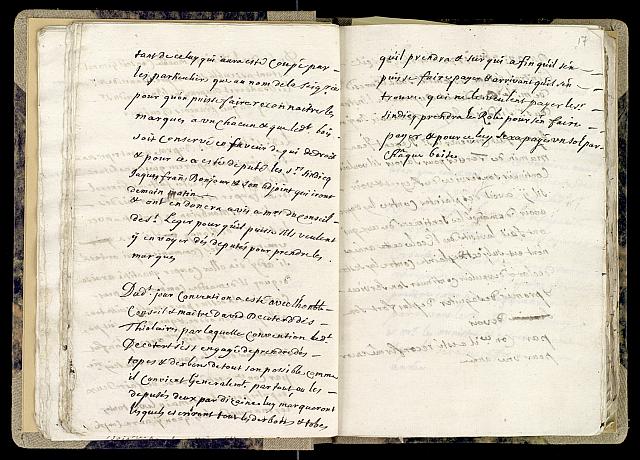 tant de celuy qui aura esté coupé par
les particulier que au nom de la Seig.rie
pour quon puisse faire reconnaitre les
marques a un chacun & que led. bois
soit conservé en faveur de qui de droit
& pour ce a esté deputé les s.rs sindicq
Jaques frans Bonjour & son adjoint qui iront
demain matin
& ont en donera avis a mrs du Conseil
de St. Legier pour quil puisse sils veulent
y envoyer des deputés pour prendre les
marques
Dud. jour Convention a esté avec lhonble
Conseil & maitre David Decoterd des
Thiolaires par laquelle Convention led.
Decoterd sest engagé de prendre des
topes & derbons de tout son possible comme
il convient Generalent par tout ou les
deputés deux par dizaine luy marqueront
lesquels escriront tous les derbons & tobes
17
quil prendra & sur qui a fin quil sen
puisse faire payer & arrivant quil sen
trouve qui ne le veulent payer les srs
sindicq prendra le Role pour sen faire
payer & pour ce luy sera payé un sol par
Chaque beste